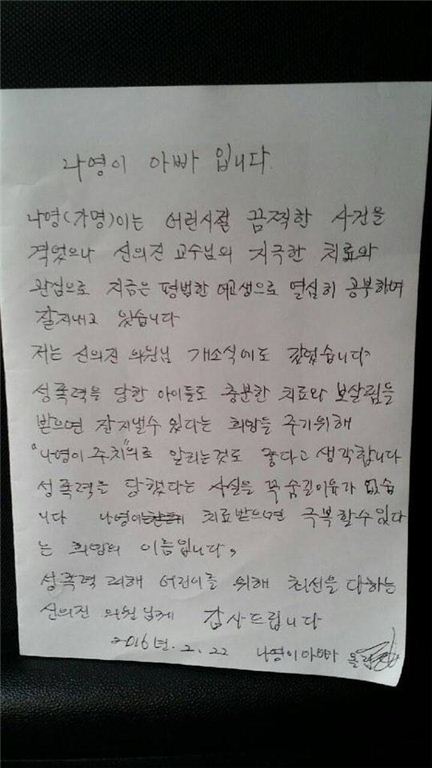 나영이 아빠 입니다
나영(가명)이는 어린시절 끔찍한 사건을
격었으나 신의진 교수님의 지극한 치료와
관심으로 지금은 평범한 여고생으로 열심히 공부하며
잘지내고 있습니다
저는 신의진 의원님 개소식에도 갔었습니다
성폭력을 당한 아이들도 충분한 치료와 보살핌을
받으면 잘지낼수 있다는 희망을 주기위해
"나영이 주치"의로 알리는것도 좋다고 생각합니다
성폭력을 당했다는 사실을 꼭 숨길이유가 없습
니다 나영이는 치료받으면 극복할수 있다
는 희망의 이름입니다,
성폭력 피해 어린이를 위해 최선을 다하는
신의진 의원님께 감사드립니다
2016년. 2. 22 나영이 아빠 올림